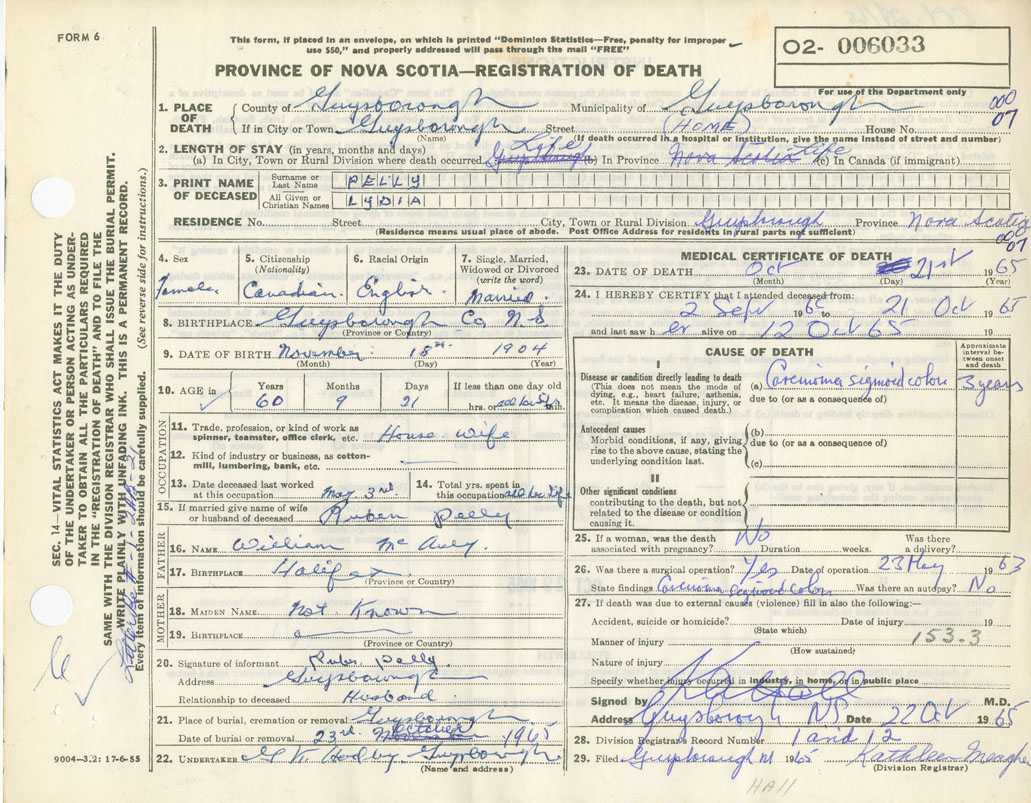 FORM 6
This form, if placed in an envelope, on which is printed "Dominion Statistics—Free, penalty for improper
use $50," and properly addressed will pass through the mail "FREE"
02- 006033
For use of the Department only
PROVINCE OF NOVA SCOTIA—REGISTRATION OF DEATH
000
07
1. PLACE OF DEATH
County of Guysborough Municipality of Guysborough
If in City or Town Guysborough Street (HOME) House No.
(Name) (If death occurred in hospital or institution, give the name instead of street and number)
2. LENGTH OF STAY (in years, months and days)
(a) In City, Town or Rural Division where death occurred Life Guysborough (b) In Province Nova Scotia Life (c) In Canada (if immigrant)
3. PRINT NAME OF DECEASED
Surname or Last Name PELLY
All Given or Christian Names LYDIA
RESIDENCE No. Street City, Town or Rural Division Guysborough Province Nova Scotia
(Residence means usual place of abode. Post Office Address for residents in rural parts not sufficient)
000
07
4. Sex Female
5. Citizenship (Nationality) Canadian
6. Racial Origin English
7. Single, Married, Widowed or Divorced (write the word) Married
8. BIRTHPLACE Guysborough Co. N.S
(Province or Country)
9. DATE OF BIRTH November 18th 1904
(Month) (Day) (Year)
10. AGE in Years 60 Months 9 Days 21 If less than one day old
hrs. or min.
OCCUPATION
11. Trade, profession, or kind of work as spinner, teamster, office clerk, etc. House wife
12. Kind of industry or business, as cotton-mill, lumbering, bank, etc.
13. Date deceased last worked at this occupation May 3rd
14. Total yrs. spent in this occupation all her life
15. If married give name of wife or husband of deceased Ruben Pelly
FATHER
16. NAME William
17. BIRTHPLACE Halifax
(Province or Country)
MOTHER
18. MAIDEN NAME Not Known
19. BIRTHPLACE
(Province or Country)
20. Signature of informant Ruben Pelly
Address Guysborough
Relationship to deceased Husband
21. Place of burial, cremation or removal Guysborough
Date of burial or removal 23rd October 1965
22. UNDERTAKER Guysborough
(Name and address)
MEDICAL CERTIFICATE OF DEATH
23. DATE OF DEATH Oct 21st 1965
(Month) (Day) (Year)
24. I HEREBY CERTIFY that I attended deceased from:
2 Sept 196 to 21 Oct 1965
and last saw h er alive on 12 Oct 65 19
CAUSE OF DEATH
Approximate interval between onset and death
I
Disease or condition directly leading to death
(This does not mean the mode of dying, e.g., heart failure, asthenia, etc. It means the disease, injury, or complication which caused death.)
(a) Carcinoma sigmoid colon 3 years
due to (or as a consequence of)
Antecedent causes
Morbid conditions, if any, giving rise to the above cause, stating the underlying condition last.
(b)
due to (or as a consequence of)
(c)
II
Other significant conditions
contributing to the death, but not related to the disease or condition causing it.
25. If a woman, was the death associated with pregnancy? No Duration weeks. Was there a delivery?
26. Was there a surgical operation? Yes Date of operation 23 May 1963
State findings Carcinoma sigmoid colon Was there an autopsy? No
27. If death was due to external causes (violence) fill in also the following:—
Accident, suicide or homicide? Date of injury 19
(State which)
Manner of injury 153.3
(How sustained)
Nature of injury
Specify whether injury occurred in industry, in home, or in public place
Signed by M.D.
Address Guysborough NS Date 22 Oct 1965
28. Division Registrar's Record Number 1 and 12
29. Filed Guysborough 1965 Kathleen Meagher
(Division Registrar)
HALL
SEC. 14—VITAL STATISTICS ACT MAKES IT THE DUTY
OF THE UNDERTAKER OR PERSON ACTING AS UNDER-
TAKER TO OBTAIN ALL THE PARTICULARS REQUIRED
IN THE "REGISTRATION OF DEATH" AND TO FILE THE
SAME WITH THE DIVISION REGISTRAR WHO SHALL ISSUE THE BURIAL PERMIT.
WRITE PLAINLY WITH UNFADING INK. THIS IS A PERMANENT RECORD.
Every item of information should be carefully supplied. (See reverse side for instructions.)
9004—3.2: 17-6-55